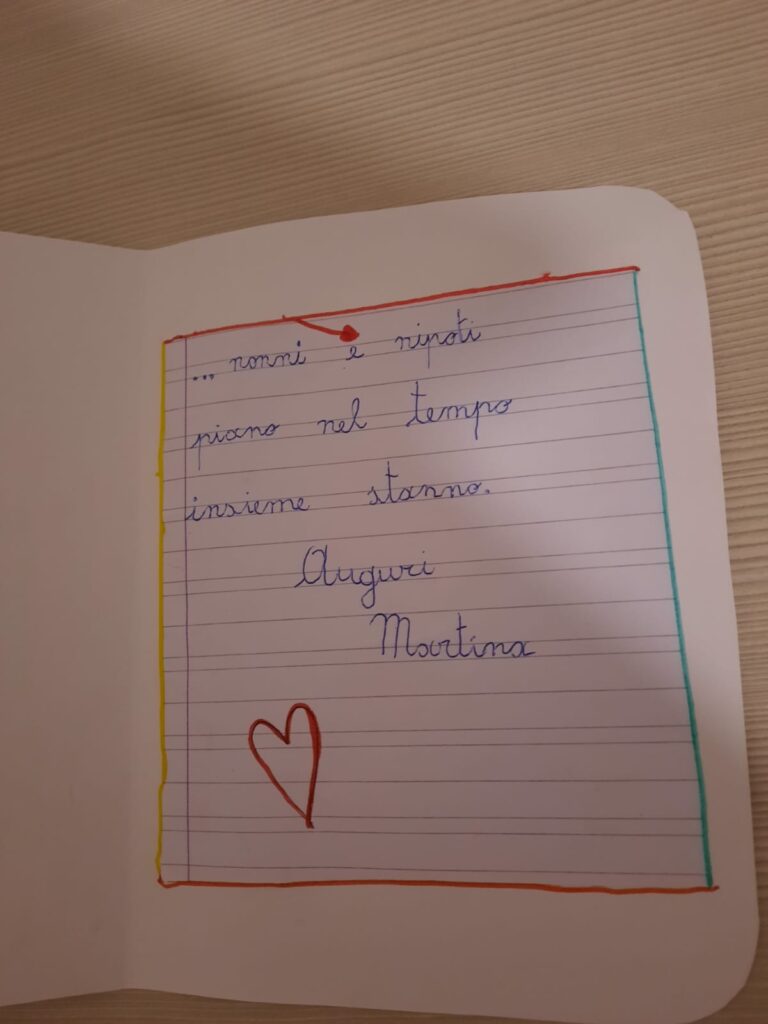 ... nonni e nipoti
piano nel tempo
insieme stanno.
Auguri
Martina